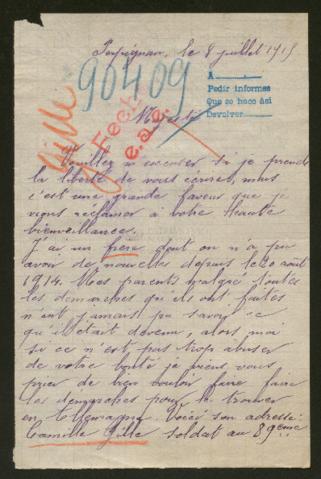 Perpignan, le 8 juillet 1915
90409
Gille
A
Pedir informes
Que se hace así
Devolver
Majesté
Veuillez m'excuser si je prends
la liberté de vous écrire, mais
c'est une grande faveur que je
viens réclamer à votre haute
bienveillance.
J'ai un frère dont on n'a pu
avoir de nouvelles depuis le 20 août
1914. Mes parents malgré toutes
les démarches qu'ils ont faites
n'ont jamais pu savoir ce
qu'il était devenu, alors moi
si ce n'est pas trop abuser
de votre bonté je viens vous
prier de bien vouloir faire faire
les démarches pour le trouver
en Allemagne. Voici son adresse:
Camille Gille soldat au 89eme